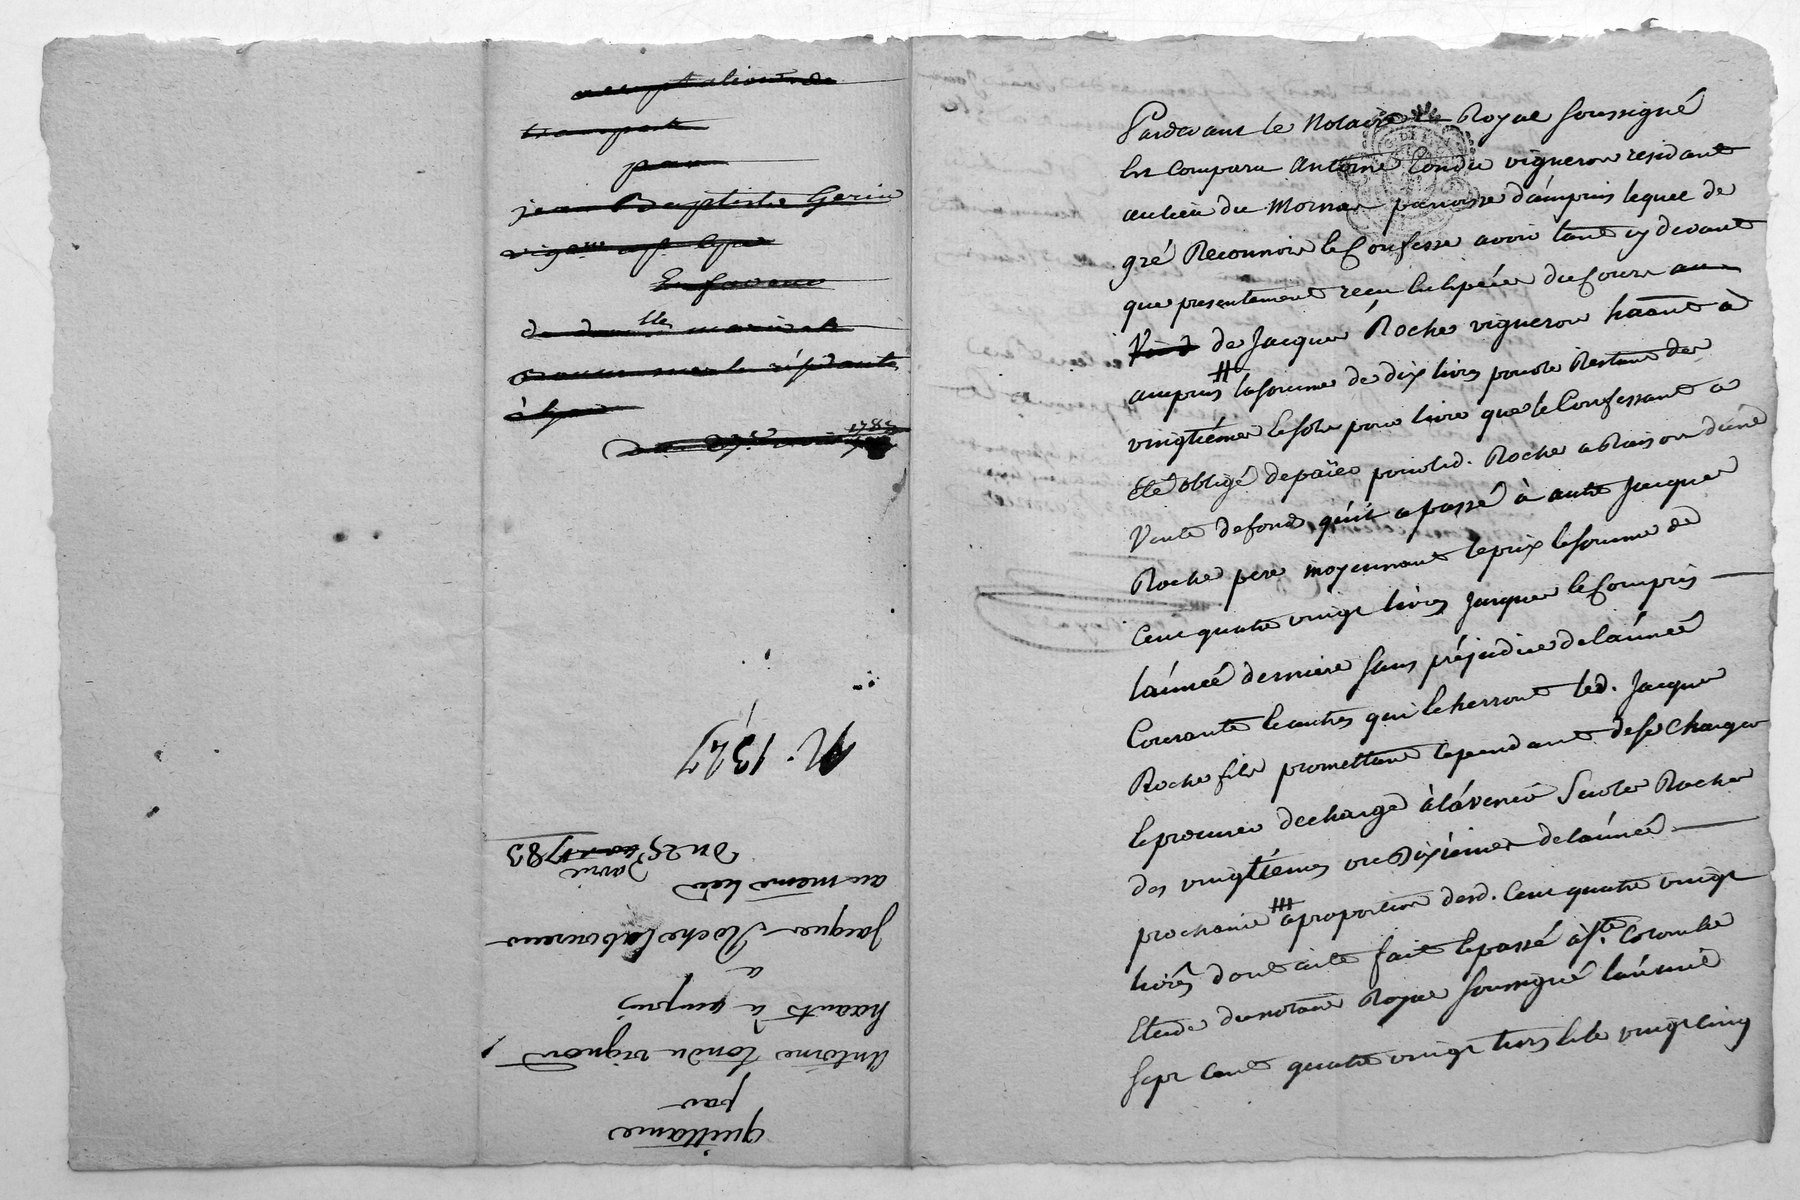 acceptation de
transport
par
jean Baptiste Gerin
vig.on
En faveur
de dem.lle
résidante
à lyon
1783
N. 1347
quittance
par
Antoine Condu vigneron
haants à ampuis
a
Jacques Roche laboureur
au même lieu
Du 25 avril 1783
Pardevant le Notaire Royal soussigné
Est Comparu Antoine Condu vigneron residant
au lieu du Mornas paroisse d'ampuis lequel de
gré Reconnoit & Confesse avoir tant cy devant
que presentement recu en Espéces du Cours au
de Jacques Roche vigneron haant à
ampuis la somme de dix livres pour le Restant des
vingtiémes & sols pour livre que le Confessant a
Eté obligé de païer pour led. Roche a Raison d'une
Vente de fond qu'il a passé à autre Jacques
Roche pere moyennant le prix & somme de
Cent quatre vingt livres jusques & Compris
l'année derniere sans préjudice de l'année
Courante & autres qui echerront led. Jacques
Roche fils promettant cependant de se Charger
& procurer decharge à l'avenir Sur le Rôle
des vingtiémes ou Dixiémes de l'année
prochaine a proportion desd. Cent quatre vingt
livres dont acte fait & passé à S.te Colombe
Etude du notaire Royal soussigné l'an mil
sept Cent quatre vingt trois & le vingt cinq